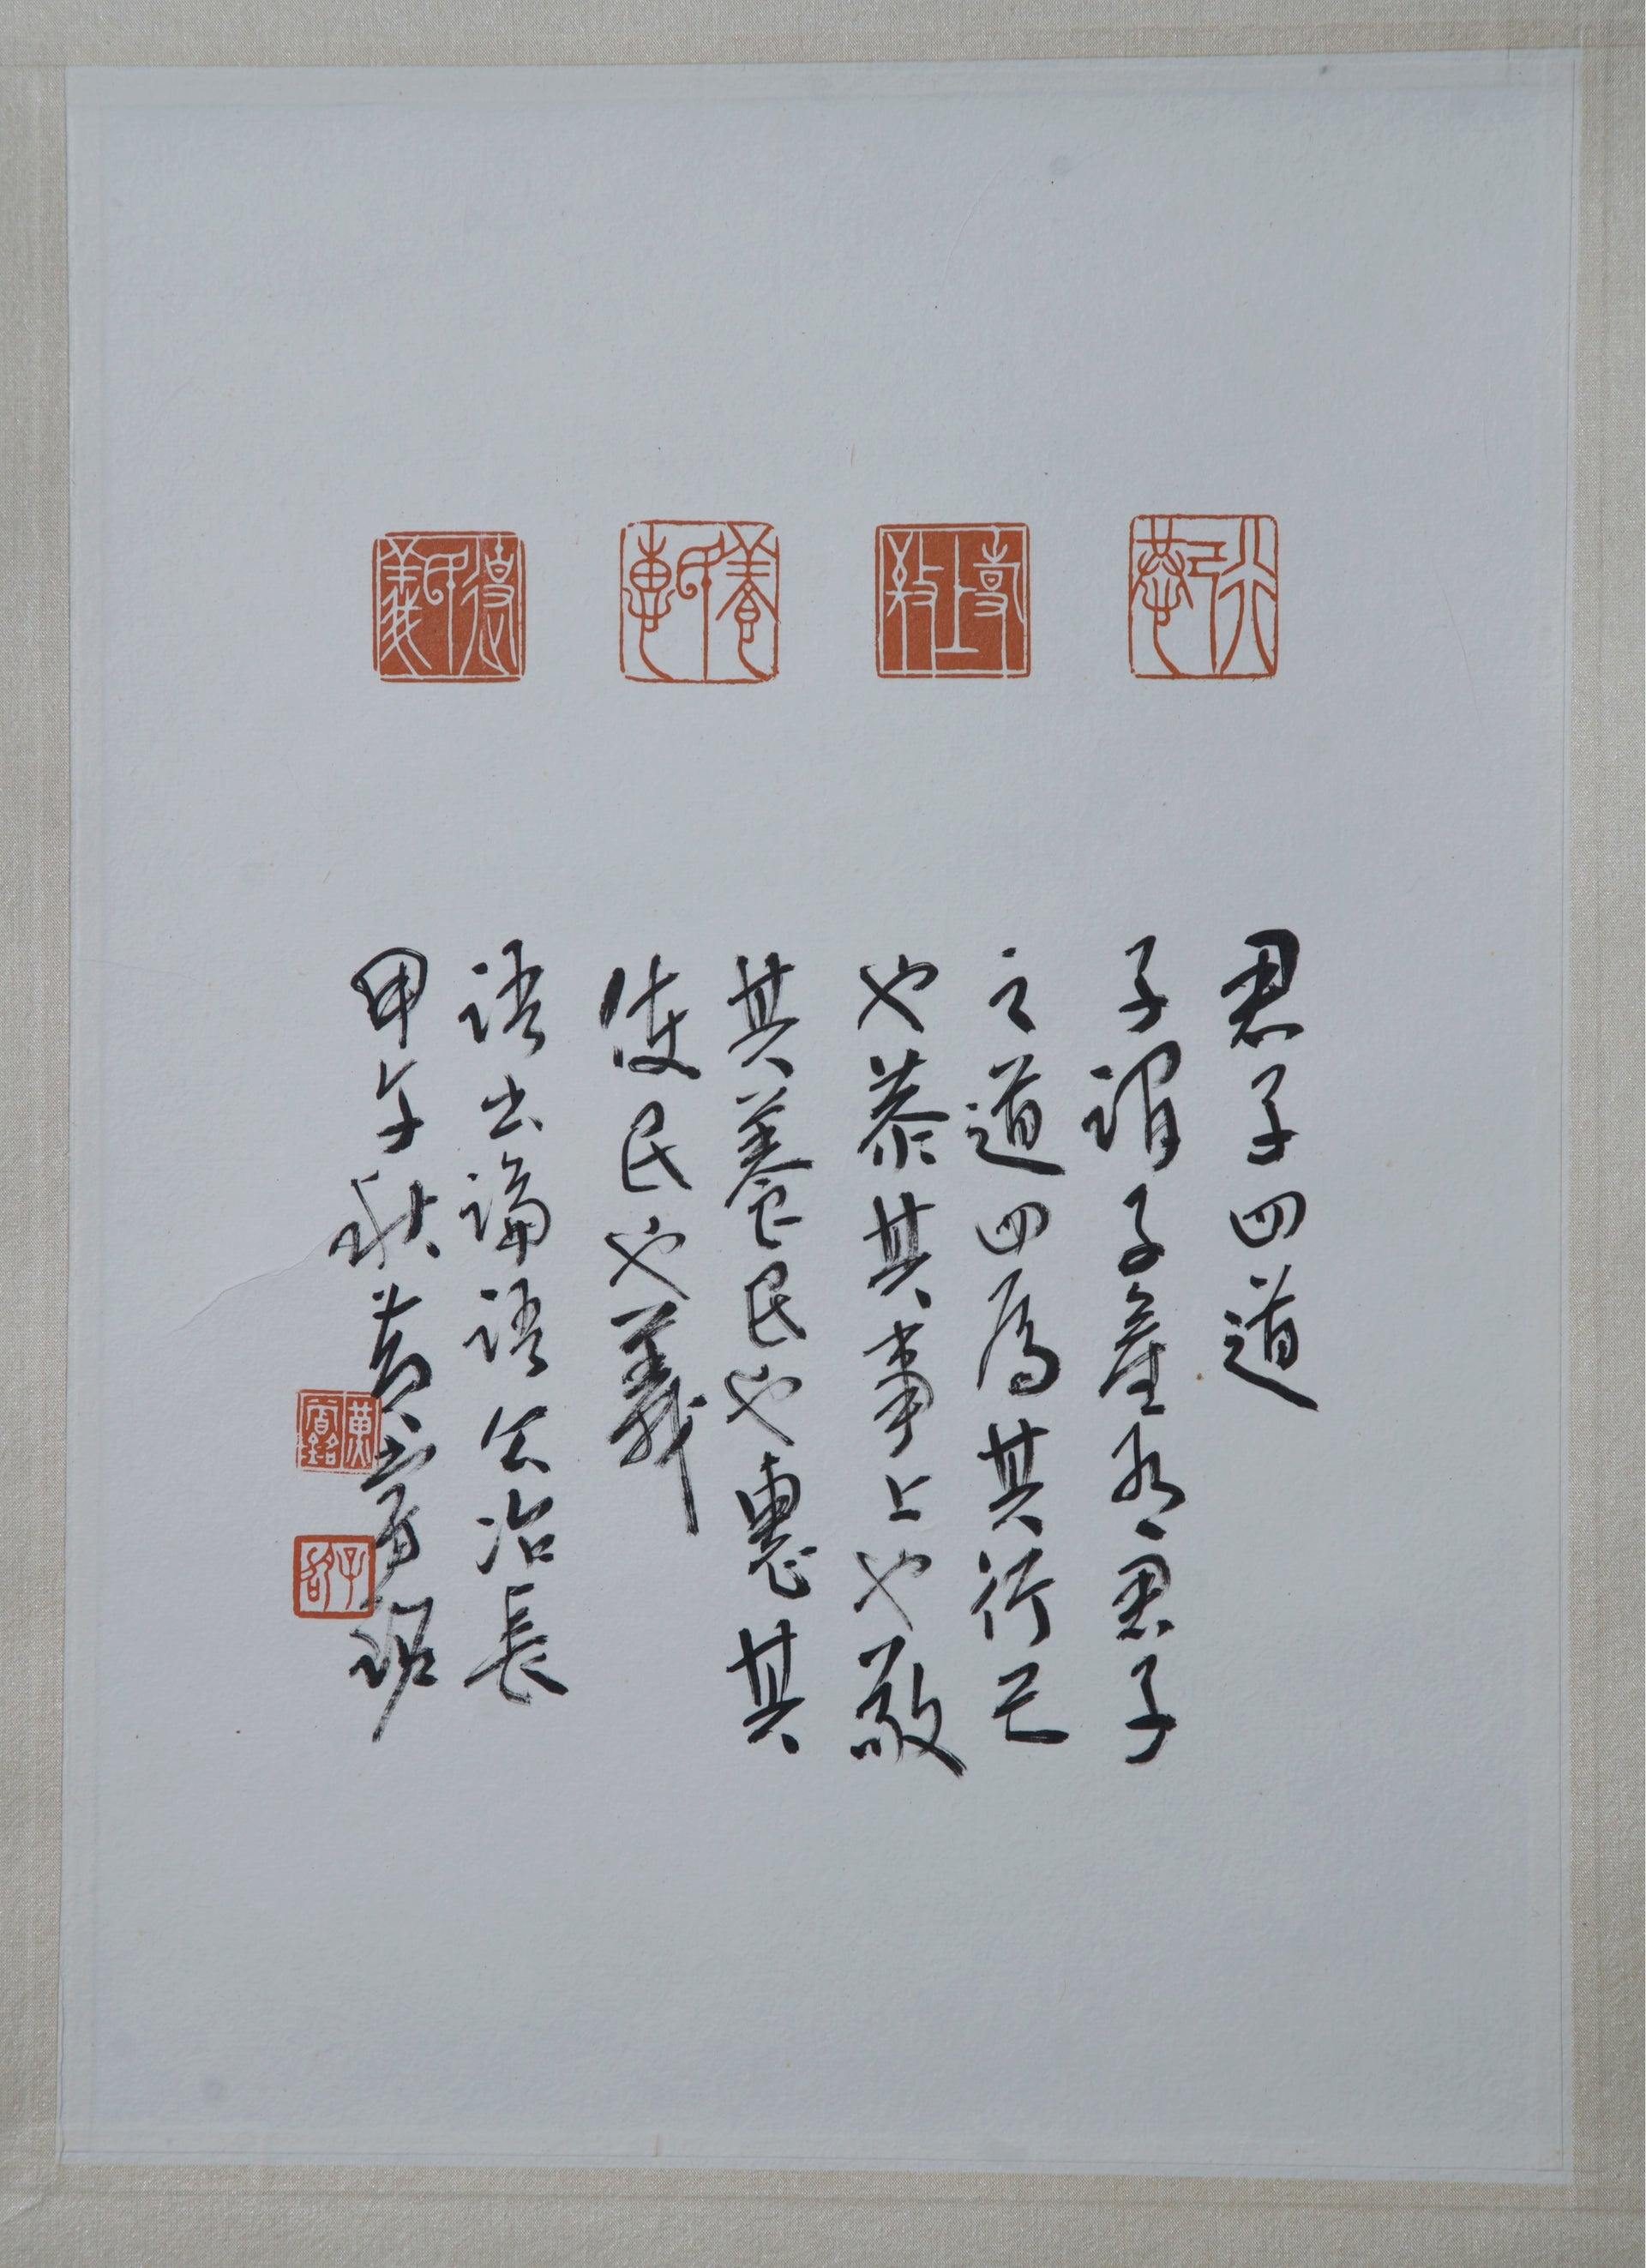 行己恭
事上敬
養民惠
使民義
君子四道
子謂子產有君子
之道四焉其行己
也恭其事上也敬
其養民也惠其
使民也義
語出論語公冶長
甲午秋黃嘗銘
黃嘗銘